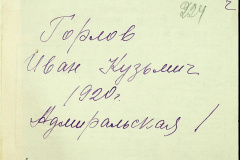 224
Горлов
Иван Кузьмич
1920г.
Адмиральская 1